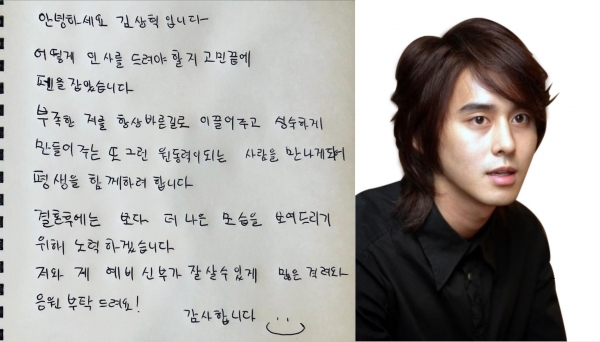 안녕하세요 김상혁 입니다~
어떻게 인사를 드려야 할지 고민끝에
펜을 잡았습니다
부족한 저를 항상바른길로 이끌어주고 성숙하게
만들어 주는 또 그런 원동력이되는 사람을 만나게되어
평생을 함께하려 합니다
결혼후에는 보다 더 나은 모습을 보여드리기
위해 노력 하겠습니다
저와 제 예비 신부가 잘 살수있게 많은 격려와
응원 부탁 드려요!
감사합니다